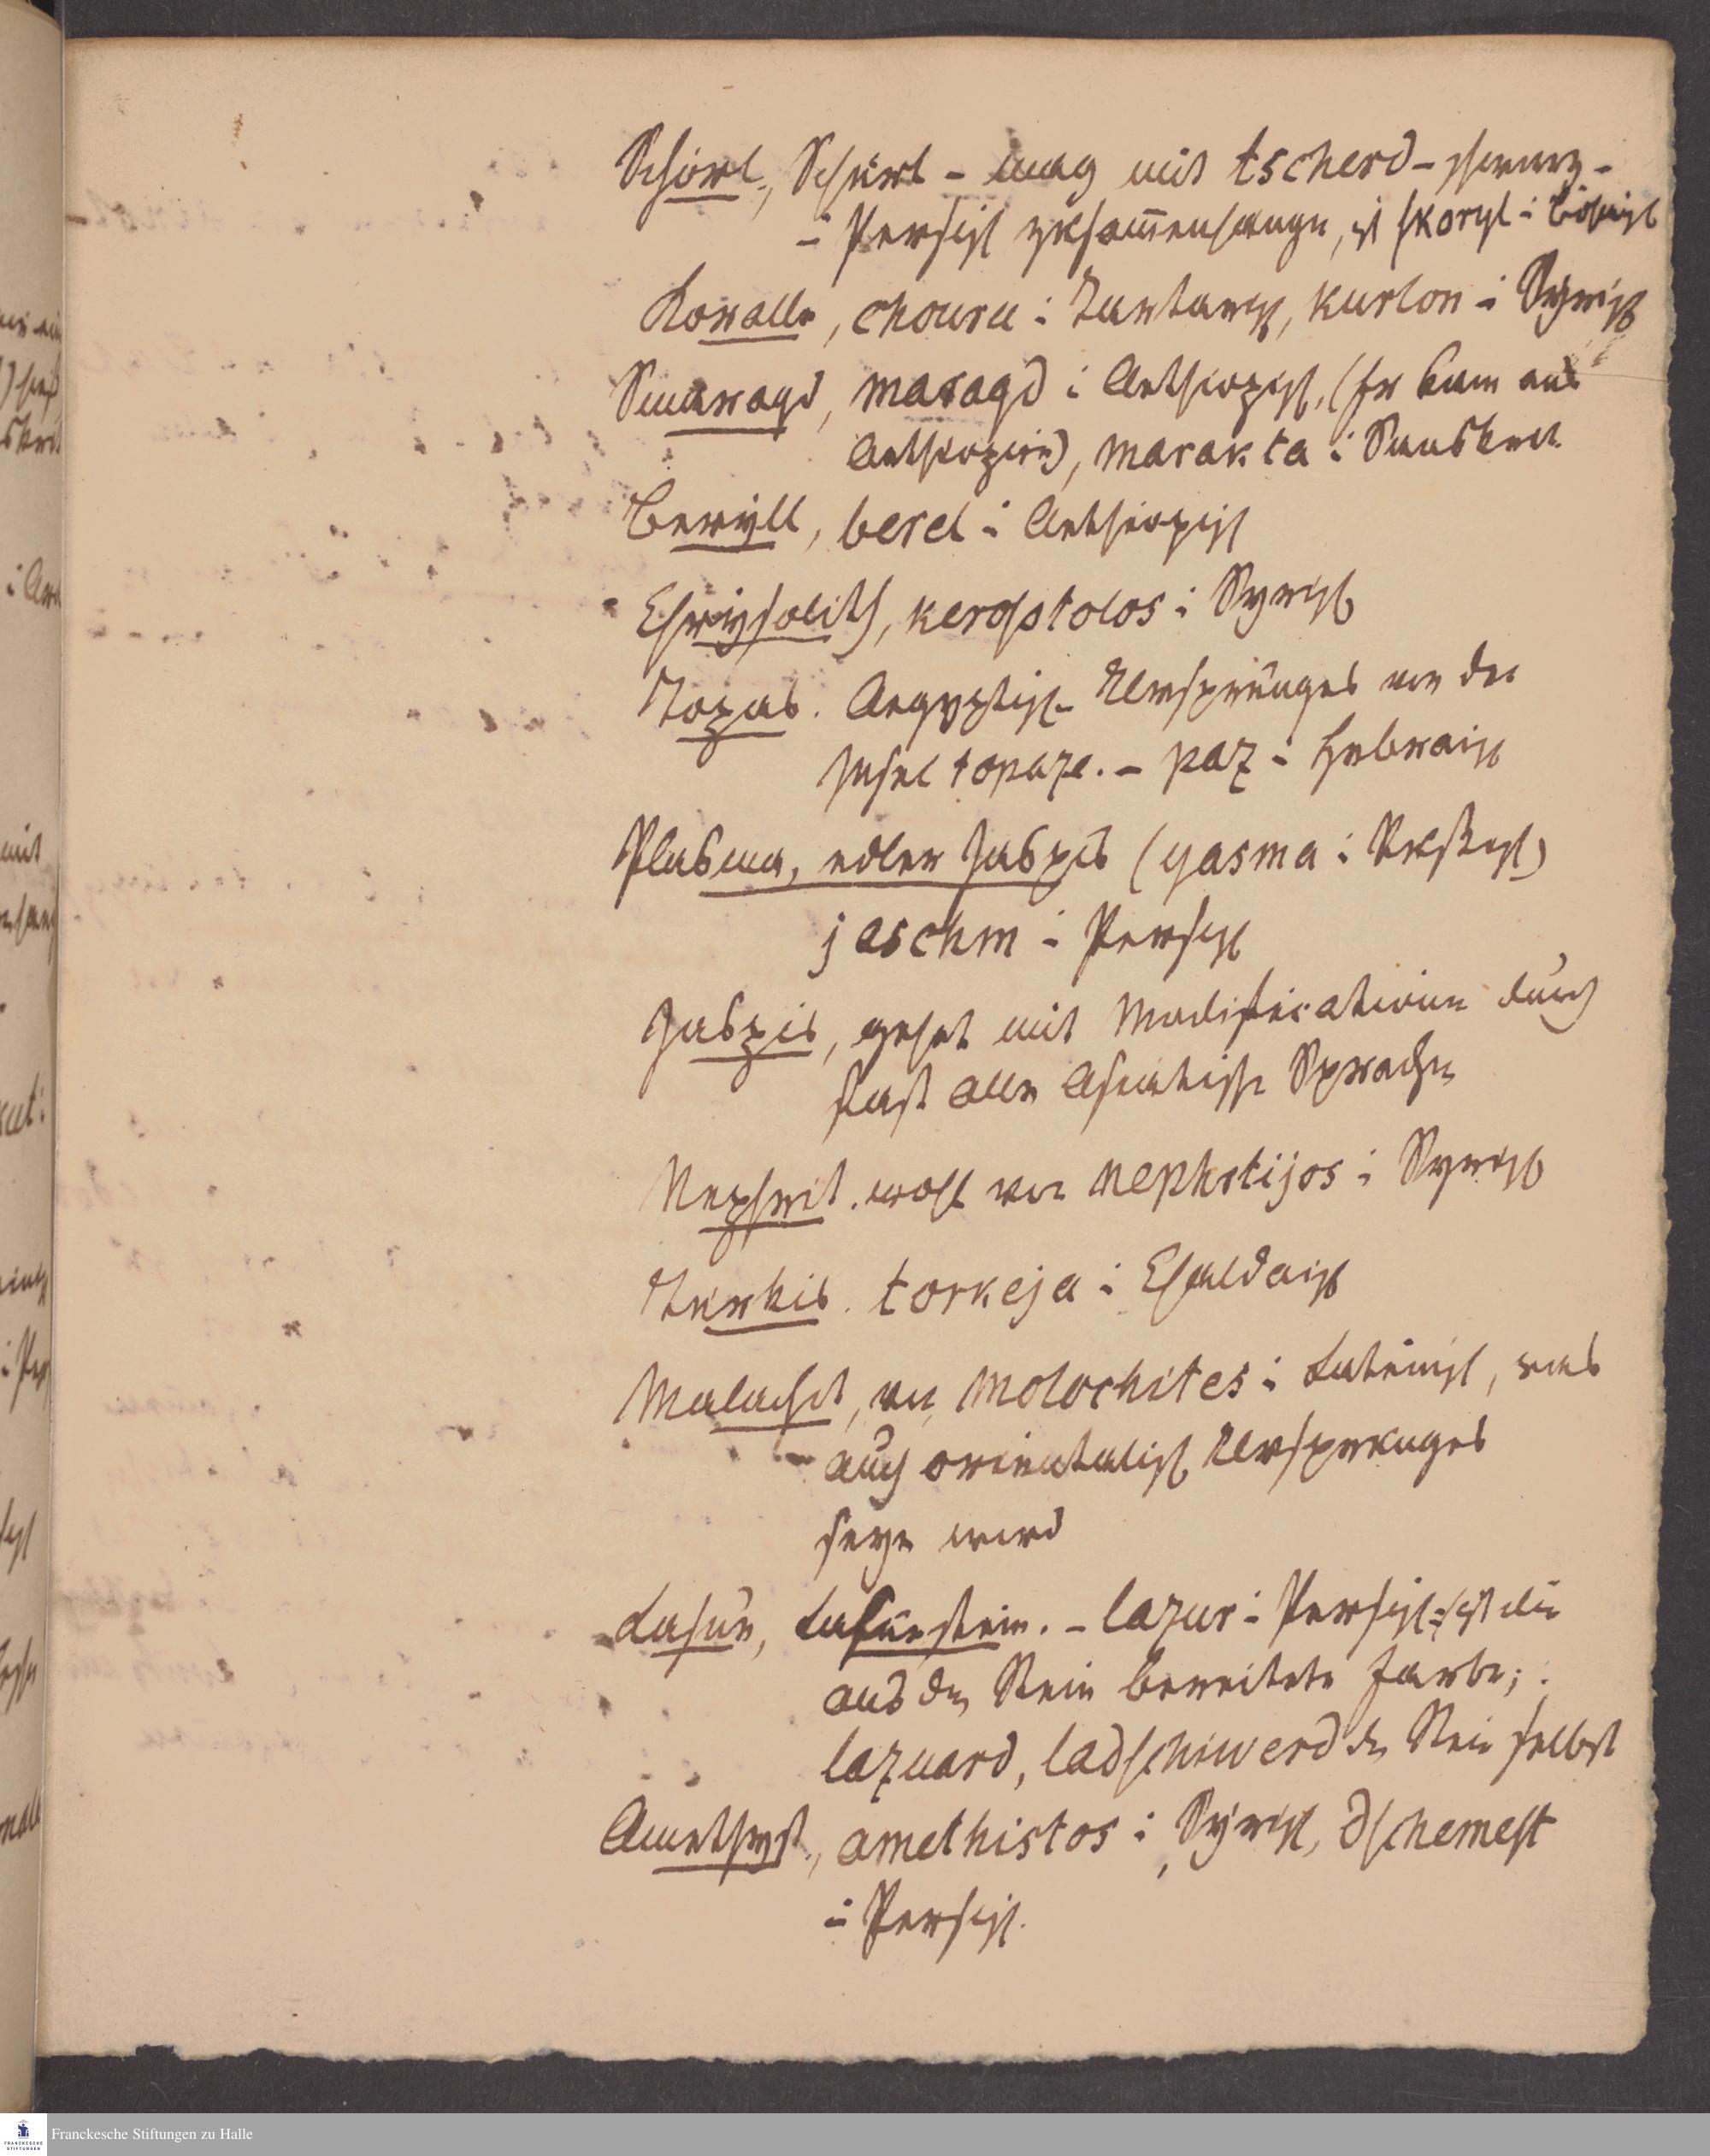 Schörl, Schürl – mag mit tscherd – schwarz –
– Persisch zusammenhangen, ist skoryl i Böhmisch
Koralle, chouru i Tartarisch, kurlon i Syrisch
Smaragd, maragd i Aethiopisch, (Er kam aus
Aethiopien), marakta i Sanskrit
Berÿll, berel i Aethiopisch
Chrÿsolith, kerostolos i Syrisch
Topas. Aegyptisch Ursprunges von der
Insel topaze. – paz i Hebraisch
Plasma, edler Jaspis (yasma i Rußisch)
jaschm i Persisch
Jaspis, gehet mit Modificationen durch
fast alle Asiatische Sprachen
Nephrit. wohl von nephrtijos i Syrisch
Türkis. torkeja i Chaldaisch
Malachit, von Molochites i Lateinisch, was
auch orientalisch Ursprunges
seyn wird
Lasur, Lasurstein. – lazur i Persisch ist die
aus dem Stein bereitete Farbe;
lazuard, ladschiwerd der Stein selbst
Amethyst, amethistos i Syrisch, dschemest
i Persisch.
Franckesche Stiftungen zu Halle